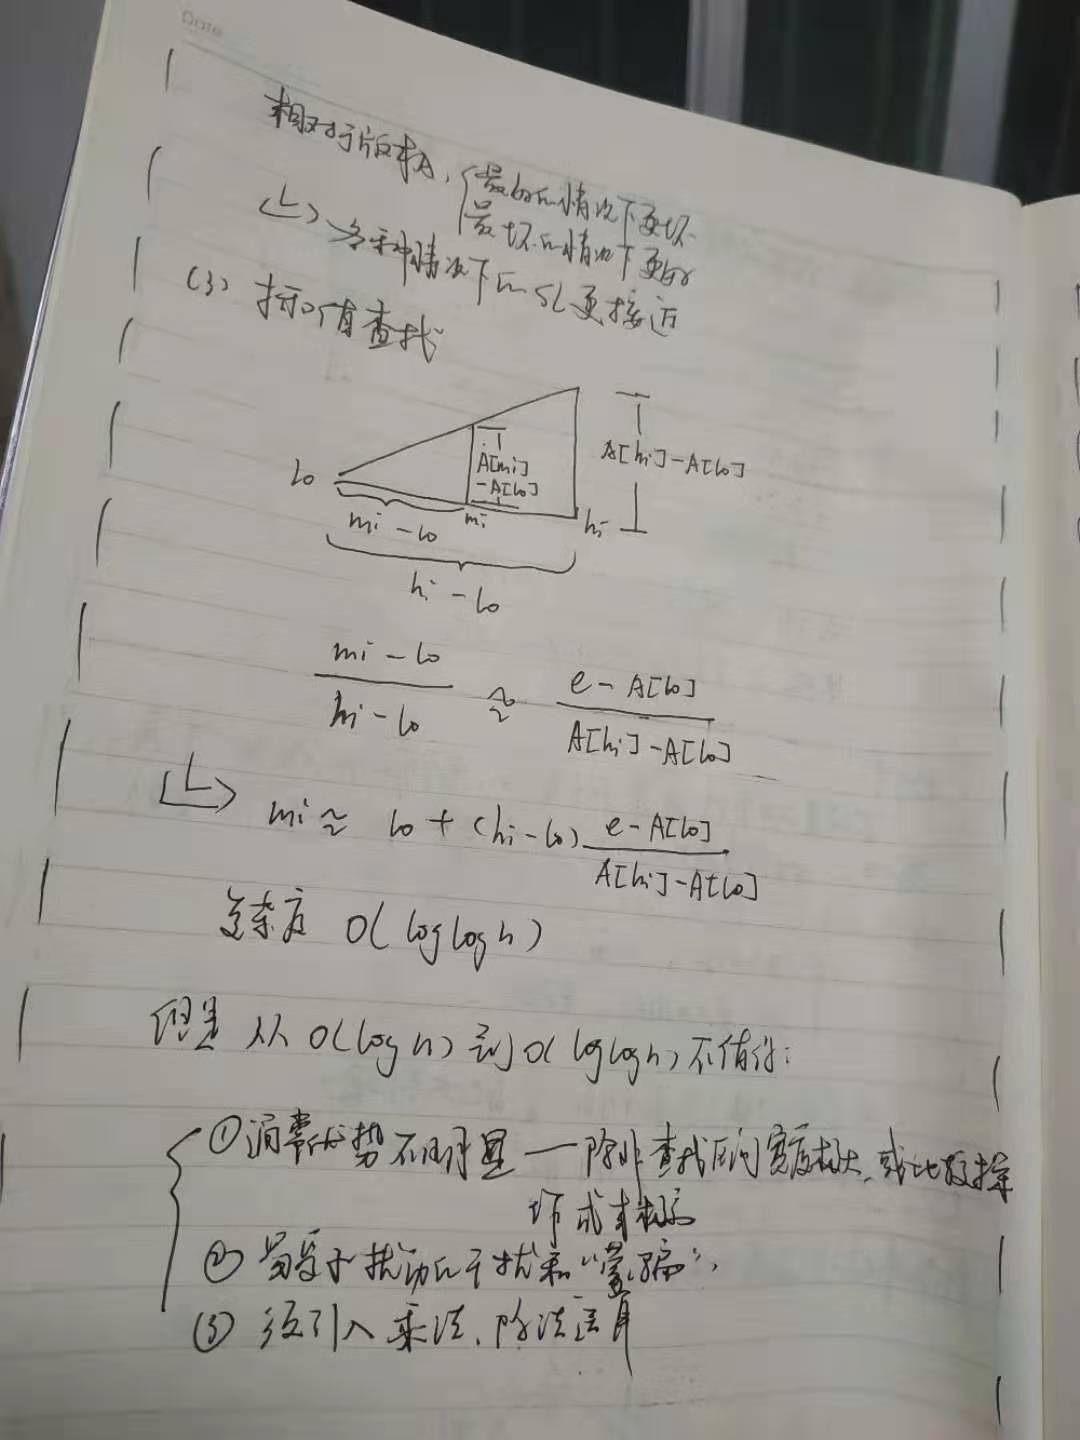 Date
相对于版本A,{最好的情况下更坏
最坏的情况下更好
└> 各种情况下的SL更接近
(3) 插值查找
A[mi]
-A[lo]
A[hi]-A[lo]
lo
mi
hi
mi-lo
hi-lo
mi-lo / hi-lo ≈ e-A[lo] / A[hi]-A[lo]
└> mi≈ lo+(hi-lo) e-A[lo] / A[hi]-A[lo]
复杂度 O(loglogn)
但是 从O(logn)到O(loglogn)不值得:
①通常优势不明显 — 除非查找区间宽度极大,或比较操
作成本极高
②易受小扰动的干扰和“蒙骗”,
(3) 须引入乘法、除法运算